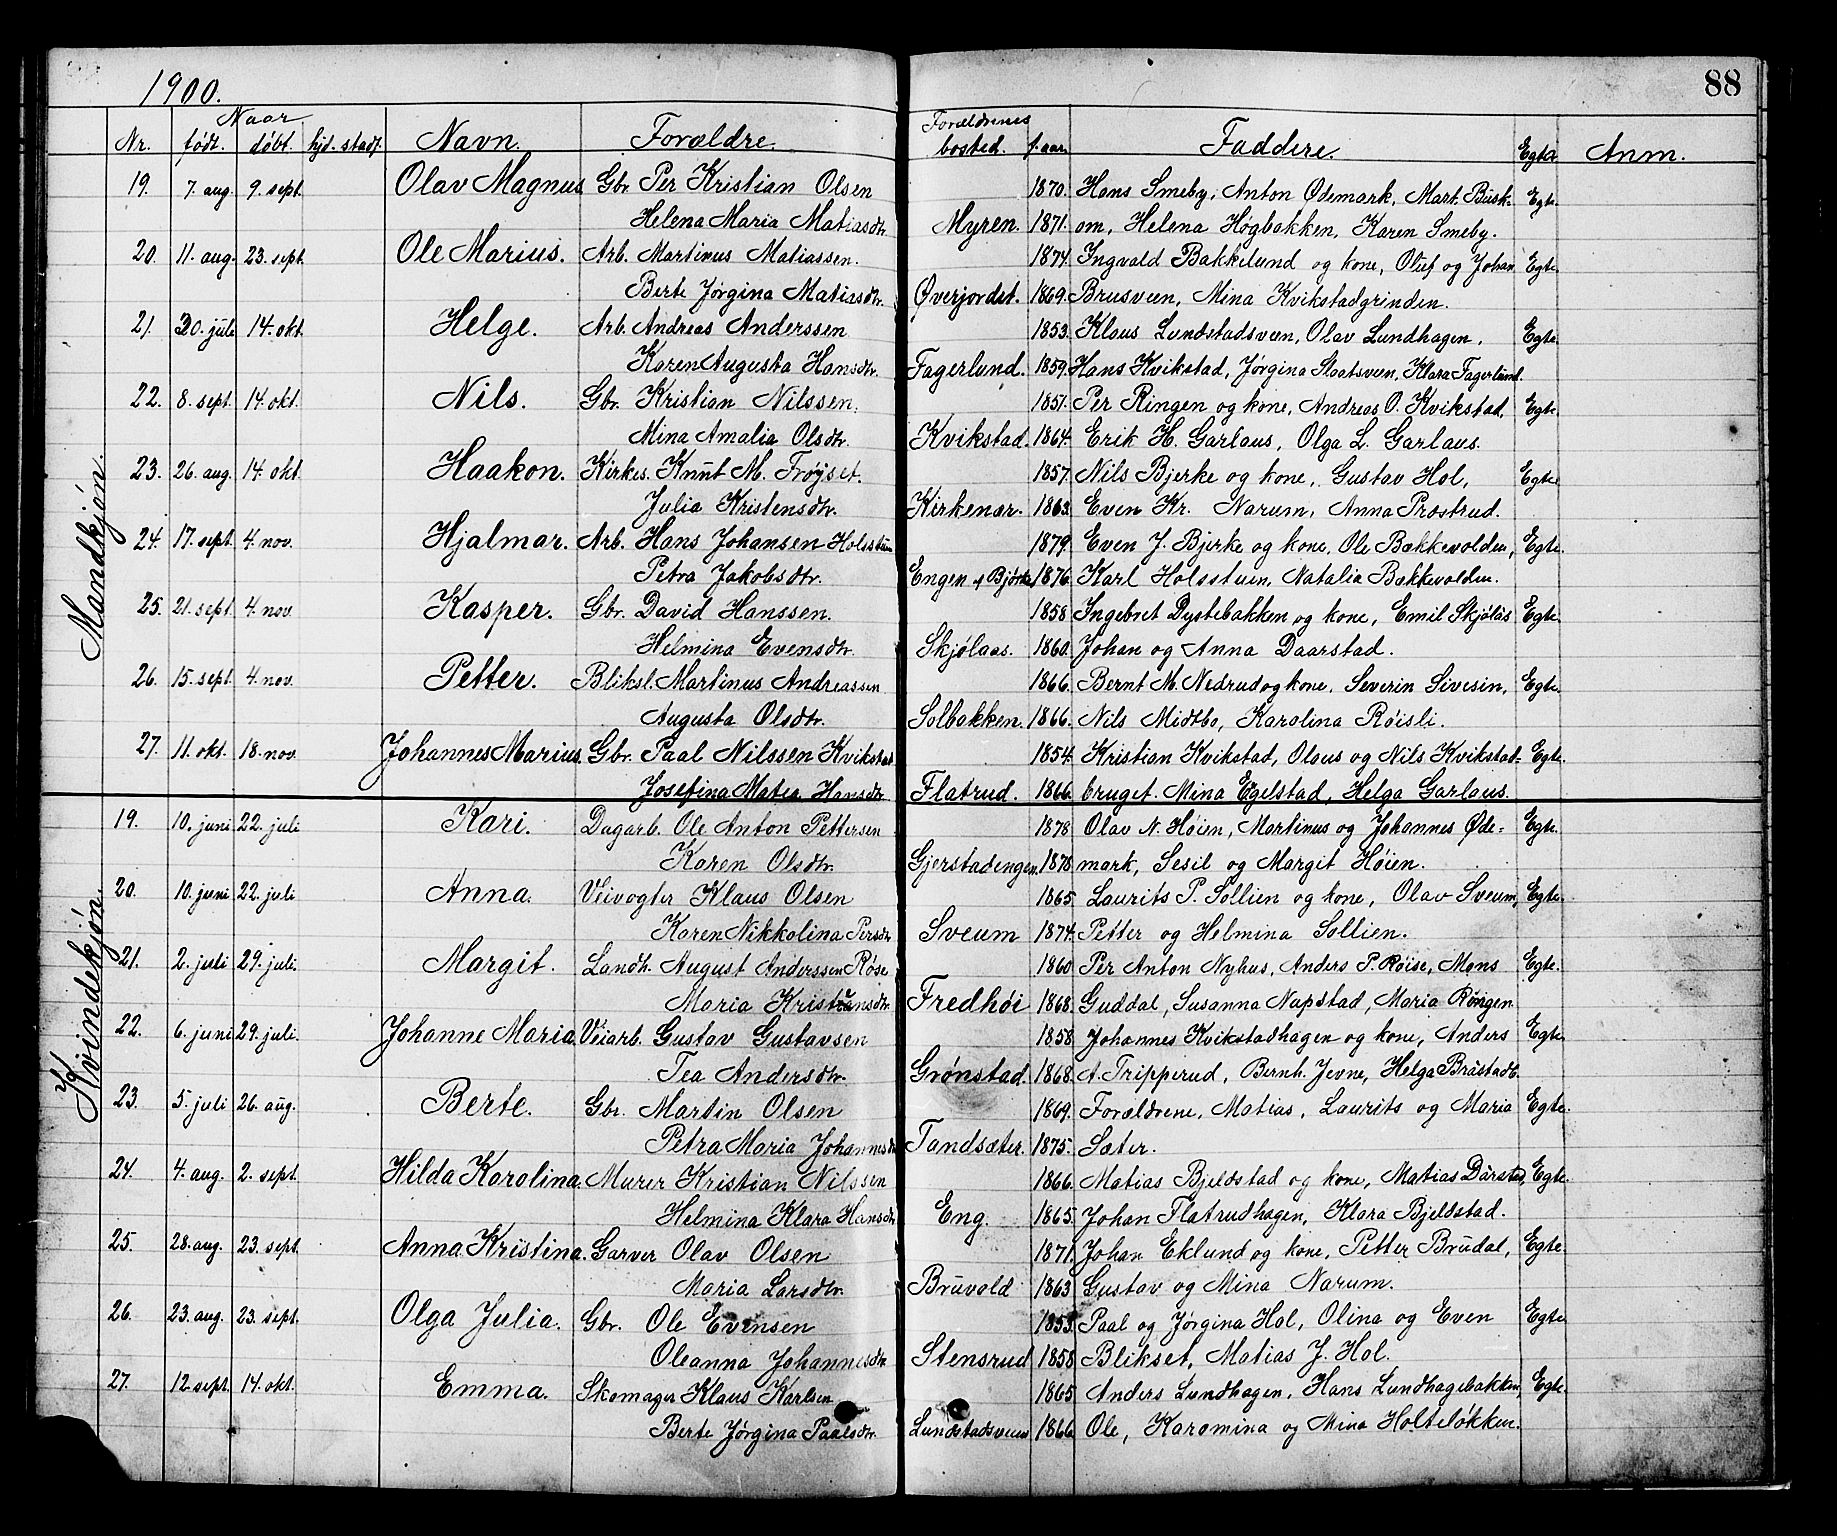 1900.
88
Naar
Nr. født. døbt. hjd. stadf. Navn. Forældre. Forældrenes bosted. f. aar. Faddere. Egta Anm.
Mandkjøn.
19. 7. aug. 9. sept. Olav Magnus Gbr. Per Kristian Olsen 1870. Hans Smeby, Anton Ødemark, Mart. Busk- Egte.
Helena Maria Matiasdtr. Myren. 1871. om, Helena Høgbakken, Karen Smeby.
20. 11. aug. 23. sept. Ole Marius. Arb. Martinus Matiassen. 1874. Ingvald Bakkelund og kone, Oluf og Johan Egte.
Berte Jørgina Matiasdtr. Øverjordet. 1869. Brusveen, Mina Kvikstadgrinden.
21. 30. juli 14. okt. Helge. Arb. Andreas Anderssen 1853. Klaus Lundstadsveen, Olav Lundhagen, Egte.
Karen Augusta Hansdtr. Fagerlund. 1859. Hans Kvikstad, Jørgina Slaatsveen, Klara Fagerlund.
22. 8. sept. 14. okt. Nils. Gbr. Kristian Nilssen. 1851. Per Ringen og kone, Andreas O. Kvikstad, Egte.
Mina Amalia Olsdtr. Kvikstad. 1864. Erik H. Garlaus, Olga L. Garlaus.
23. 26. aug. 14. okt. Haakon. Kirkes. Knut M. Frøjset. 1857. Nils Bjerke og kone, Gustav Hol, Egte.
Julia Kristensdtr. Kirkenær. 1863. Even Kr. Narum, Anna Præstrud.
24. 17. sept. 4. nov. Hjalmar. Arb. Hans Johansen Holsstuen 1879. Even J. Bjerke og kone, Ole Bækkevolden, Egte.
Petra Jakobsdtr. Engen 1876. Karl Holsstuen, Natalia Bækkevolden.
25. 21. sept. 4. nov. Kasper. Gbr. David Hanssen. 1858 Ingebret Dystebakken og kone, Emil Skjølås Egte.
Helmina Evensdtr. Skjølaas. 1860. Johan og Anna Daarstad.
26. 15. sept. 4. nov. Petter. Bliksl. Martinus Andreassen 1866. Bernt M. Nedrud og kone, Severin Sivesin, Egte.
Augusta Olsdtr. Solbakken. 1866. Nils Midtbo, Karolina Røisli.
27. 11. okt. 18. nov. Johannes Marius. Gbr. Paal Nilssen Kvikstad 1854. Kristian Kvikstad, Olaus og Nils Kvikstad- Egte.
Josefina Matea Hansdtr. Flatrud. 1866. bruget. Mina Egelstad, Helga Garlaus.
Kvindekjøn.
19. 10. juni 22. juli Kari. Dagarb. Ole Anton Pettersen 1878 Olav N. Høien, Martinus og Johannes Øde= Egte.
Karen Olsdtr. Gjerstadengen. 1878. mark, Sesil og Margit Høien.
20. 10. juni 22. juli Anna. Veivogter Klaus Olsen 1865 Laurits P. Sollien og kone, Olav Sveum, Egte.
Karen Nikkolina Persdtr. Sveum 1874. Petter og Helmina Sollien.
21. 2. juli 29. juli. Margit. Landh. August Anderssen Røse 1860 Per Anton Nyhus, Anders P. Røise, Mons Egte.
Maria Kristiansdtr. Fredhøi 1868. Guddal, Susanna Nupstad, Maria Ringen
22. 6. juni 29. juli. Johanne Maria. Veiarb. Gustav Gustavsen 1858 Johannes Kvikstadhagen og kone, Anders Egte.
Tea Andersdtr. Grønstad. 1868. A. Tripperud, Bernh. Jevne, Helga Bråstadb.
23. 5. juli 26. aug. Berte. Gbr. Martin Olsen 1869. Forældrene, Matias, Laurits og Maria Egte.
Petra Maria Johannesdtr Tandsæter. 1875. Sæter.
24. 4. aug. 2. sept. Hilda Karolina. Murer Kristian Nilssen 1866. Matias Bjeldstad og kone, Matias Dårstad, Egte.
Helmina Klara Hansdtr Eng. 1865. Johan Flatrudhagen, Klara Bjeldstad.
25. 28. aug. 23. sept. Anna Kristina. Garver Olav Olsen 1871. Johan Eklund og kone, Petter Brudal, Egte.
Maria Larsdtr. Bruvold 1863 Gustav og Mina Narum.
26. 23. aug. 23. sept. Olga Julia. Gbr. Ole Evensen 1853. Paal og Jørgina Hol, Olina og Even Egte.
Oleanna Johannesdtr Stensrud 1858 Blikset, Matias J. Hol.
27. 12. sept. 14. okt. Emma. Skomager Klaus Karlsen 1865 Anders Lundhagen, Hans Lundhagebakken, Egte.
Berte Jørgina Paalsdtr. Lundstadsveen 1866. Ole, Karomina og Mina Holteløkken.